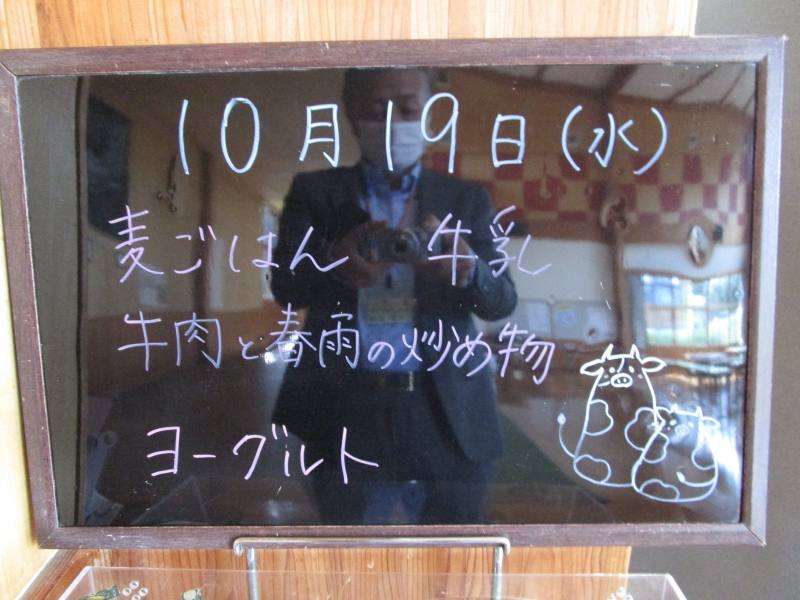 10月19日(水)
麦ごはん 牛乳
牛肉と春雨の炒め物
ヨーグルト